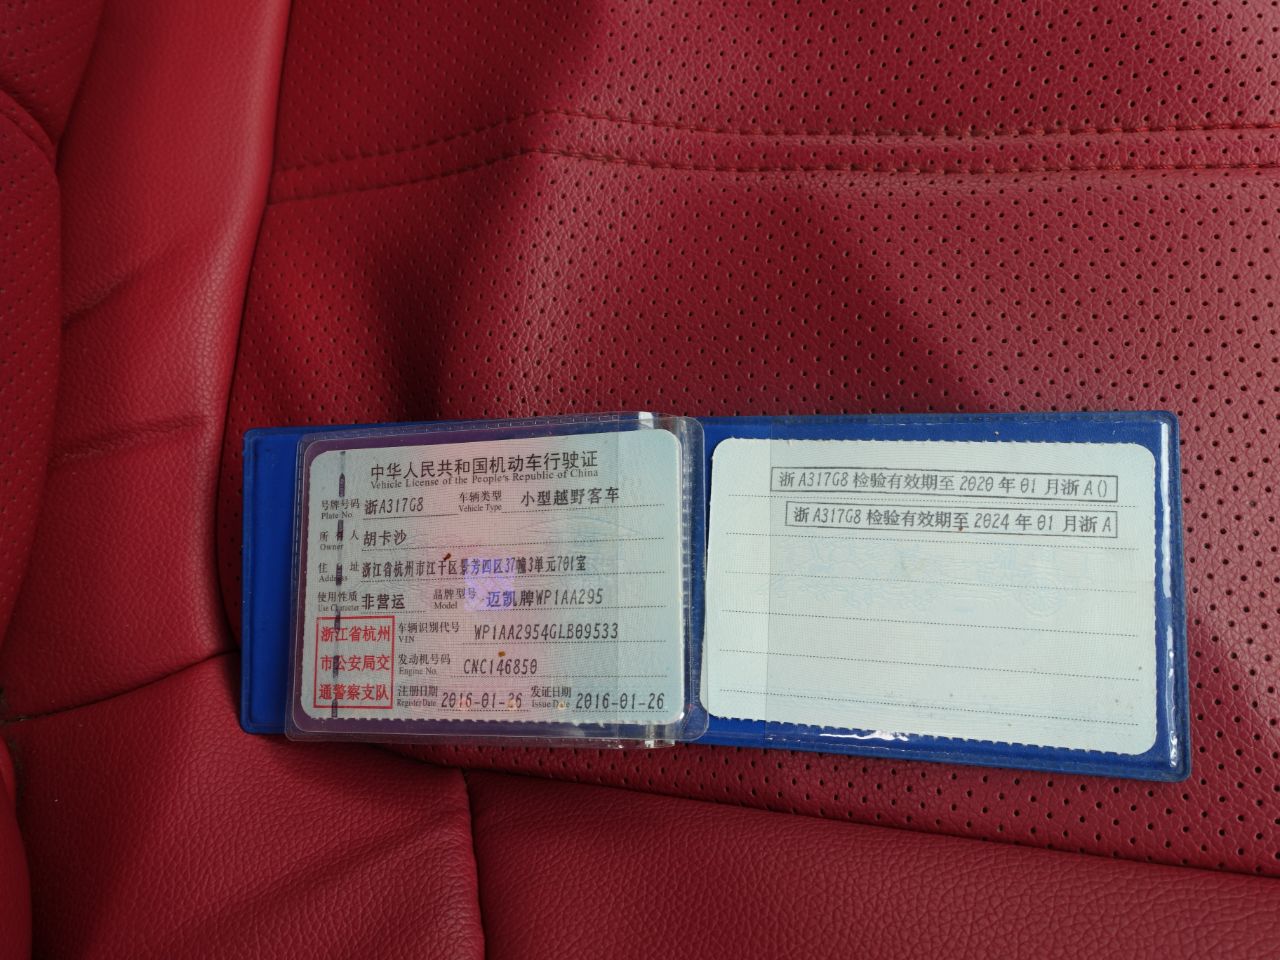 中华人民共和国机动车行驶证
Vehicle License of the People's Republic of China
号牌号码 浙A317G8 车辆类型 小型越野客车
Plate No. Vehicle Type
所有人 胡卡沙
Owner
住址 浙江省杭州市江干区景芳四区37幢3单元701室
Address
使用性质 非营运 品牌型号 迈凯牌WP1AA295
Use Character Model
浙江省杭州
市公安局交
通警察支队
车辆识别代号 WP1AA2954GLB09533
VIN
发动机号码 CNC146850
Engine No.
注册日期 2016-01-26 发证日期 2016-01-26
Register Date Issue Date
浙A317G8检验有效期至2020年01月浙A()
浙A317G8检验有效期至2024年01月浙A